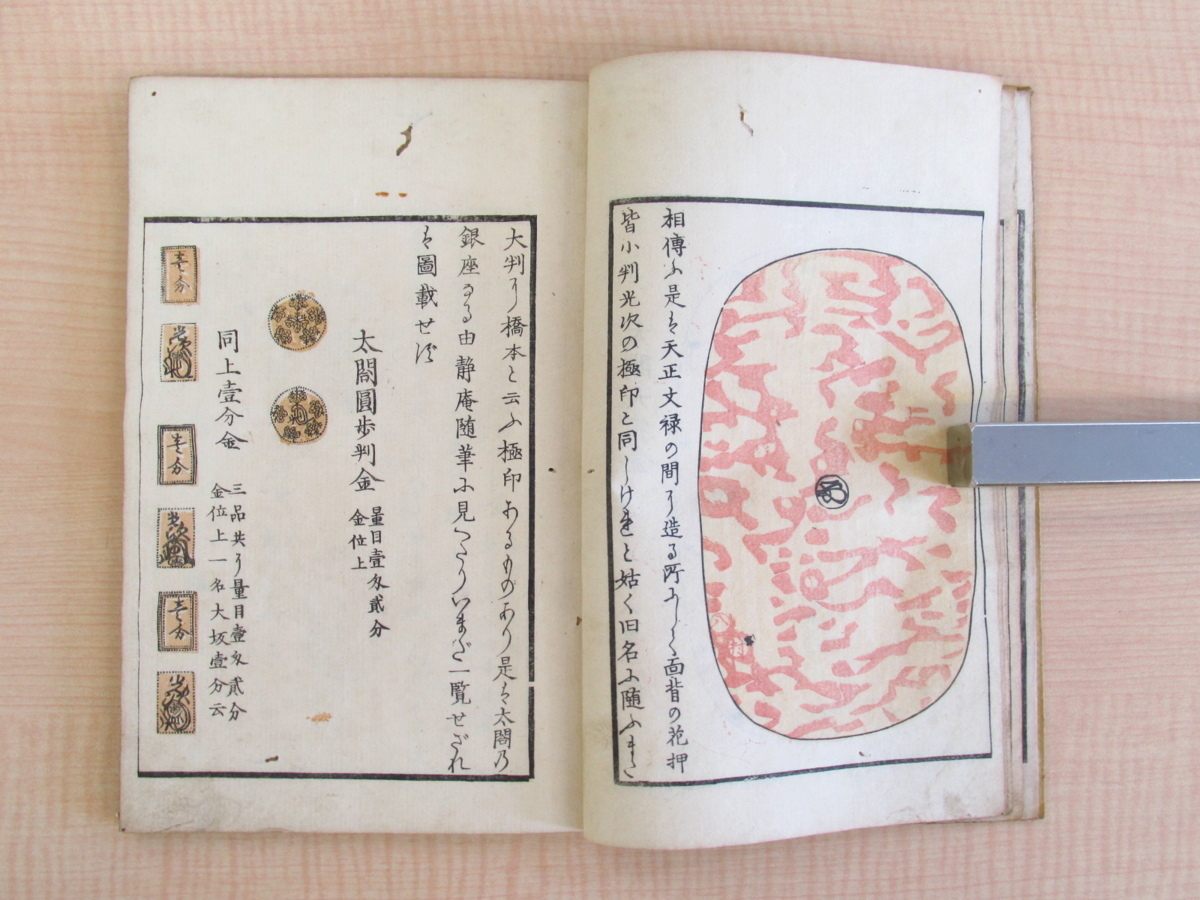 相傳ふ是は天正文禄の間に造る所にして面背の花押
皆小判光次の極印と同しけれと姑く旧名に随ふまた
大判に橋本と云ふ極印あるものあり是は太閤乃
銀座なる由静庵随筆ふ見へたりいまだ一覧せざれ
は圖載せず
太閤圓歩判金
量目壹匁貳分
金位上
同上壹分金
三品共に量目壹匁貳分
金位上一名大坂壹分云
壱分
壱分
壱分